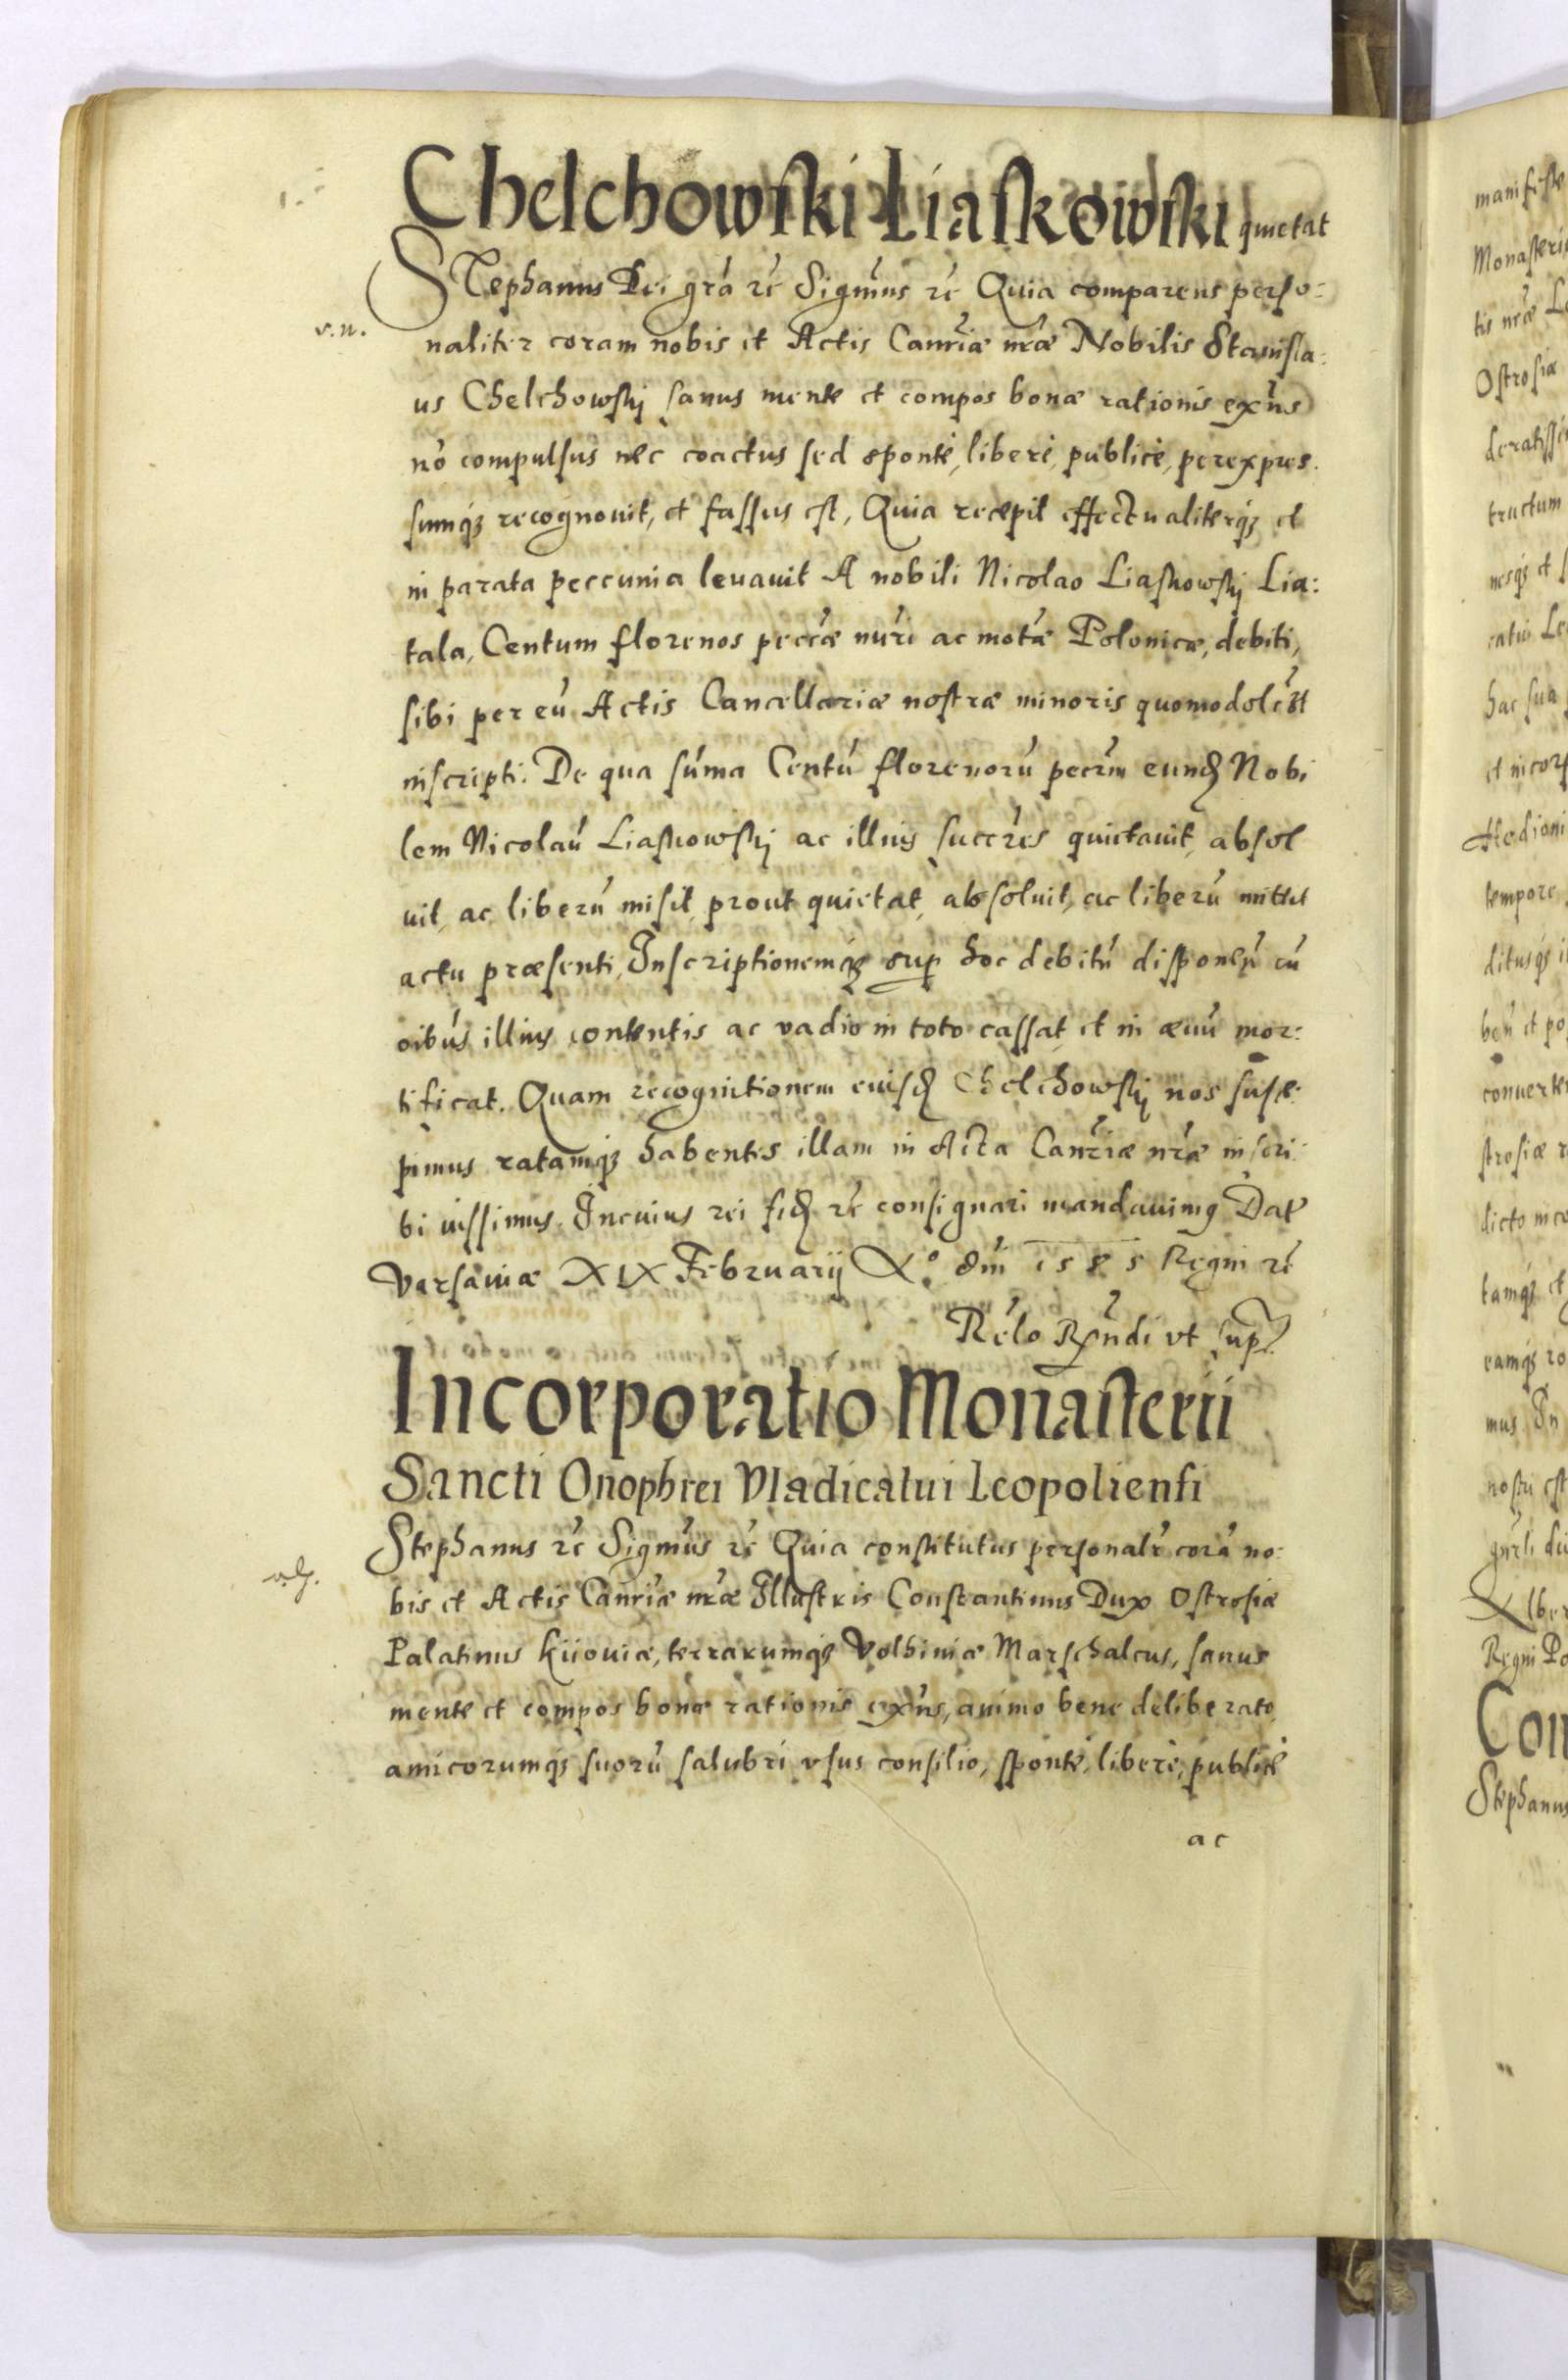 Chelchowski Liaskowski quietat
Stephanus Dei grã rc̃ Sigm̃us rc̃ Quia comparens perso:
v.n.
naliter coram nobis et Actis Canr̃iæ nr̃æ Nobilis Stanisla:
us Chelchowskj sanus mente et compos bonæ rationis exñs
nõ compulsus nec coactus sed sponte, libere, publice, perexpres
sumq; recognouit, et fassus est, Quia recepit effectualiterq; et
in parata peccunia leuauit A nobili Nicolao Liaskowskj Lia:
tala, Centum florenos pecc̃æ nũri ac mot̃æ Polonicæ, debiti,
sibi per eũ Actis Cancellariæ nostræ minoris quomodolc̃t
inscripti. De qua sũma Centũ florenorũ pecc̃m eund Nobi
lem Nicolaũ Liaskowskj ac illius succr̃es quietauit, absol
uit, ac liberũ misit, prout quietat, absoluit, ac liberũ mittit
actu præsenti, Inscriptionemq; sup hoc debitũ disponeñ cũ
oibũs illius contentis ac vadio in toto cassat, et in æuũ mor:
tificat. Quam recognitionem eiusd Chelchowskj nos susce:
pimus ratamq; habentes illam in Acta Canr̃iæ nr̃æ inscri:
bi iussimus. In cuius rei fid rc̃ consignari mandauimus Dat
Varsauiæ XIX Februarij Aº dñi 1585 Regni rc̃
Rẽlo Rx̃ndi vt sup
Incorporatio Monasterii
Sancti Onophrei Vladicatui Leopoliensi
Stephanus rc̃ Sigm̃us rc̃ Quia constitutus personalr̃ corã no:
bis et Actis Canr̃iæ nr̃æ Illustris Constantinus Dux Ostrosiæ
Palatinus Kijouiæ, terrarumq; Volhiniæ Marschalcus, sanus
mente et compos bonæ rationis exñs, animo bene deliberato,
amicorumq; suorũ salubri vsus consilio, sponte, libere, publice
ac
manifeste
Monasteri
tis nr̃æ
Ostrosiæ
tructum
hac sua
tempore
dicto
Regni Po
Stephanus